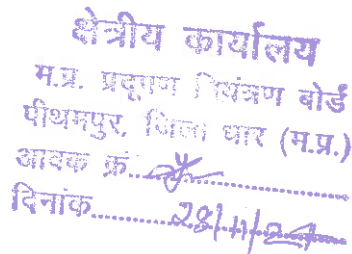 क्षेत्रीय कार्यालय
म.प्र. प्रदूषण नियंत्रण बोर्ड
पीथमपुर, जिला धार (म.प्र.)
आवक क्रं
दिनांक 28/11/24